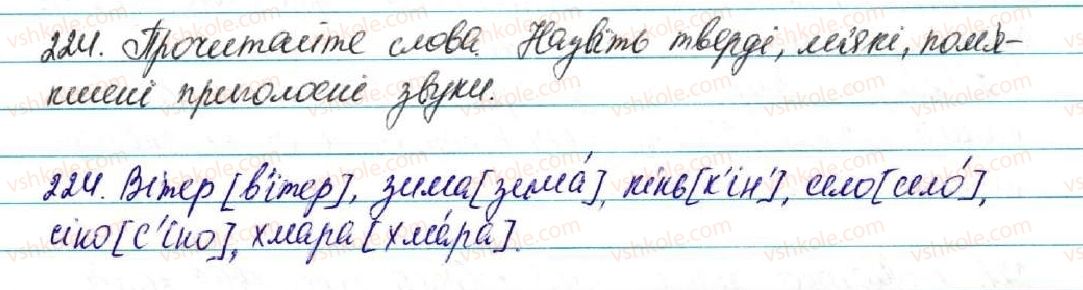 224. Прочитайте слова. Назвіть тверді, м'які, пом'я-
кшені приголосні звуки.
224. Вітер [в'ітер], зима [зима́], кінь [к'ін'], село [село́],
сіно [с'і́но], хмара [хма́ра].